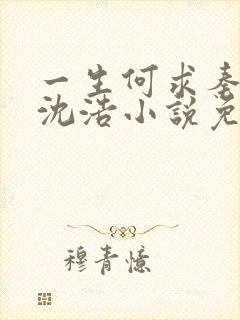 一生何求秦
沈浩小說免
穆青憶